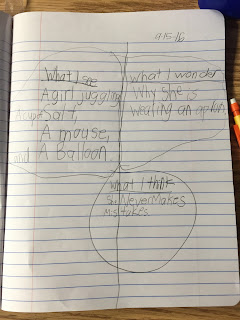 9-15-16
What I see
A girl juggling
A cup Salt,
A mouse,
and A Balloon.
what I wonder
Why she is
wearing an apron.
what I think
She NeverMakes
Mistakes.